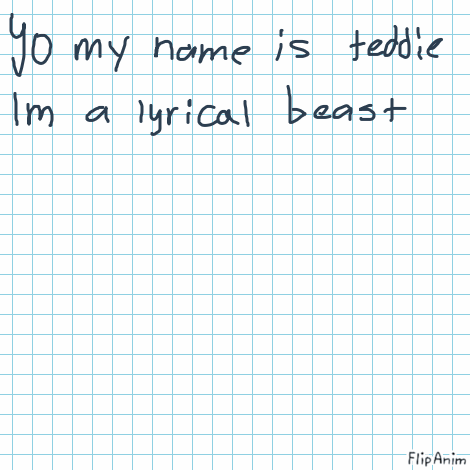 Yo my name is teddie
Im a lyrical beast
FlipAnim